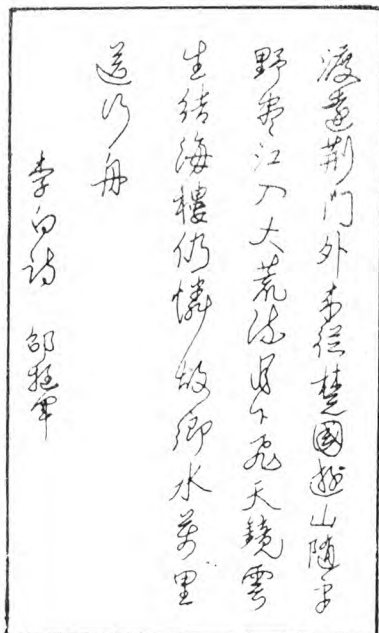 渡遠荆門外來從楚國遊山隨平
野盡江入大荒流月下飛天鏡雲
生結海樓仍憐故鄉水萬里
送行舟
李白詩 邹挺军